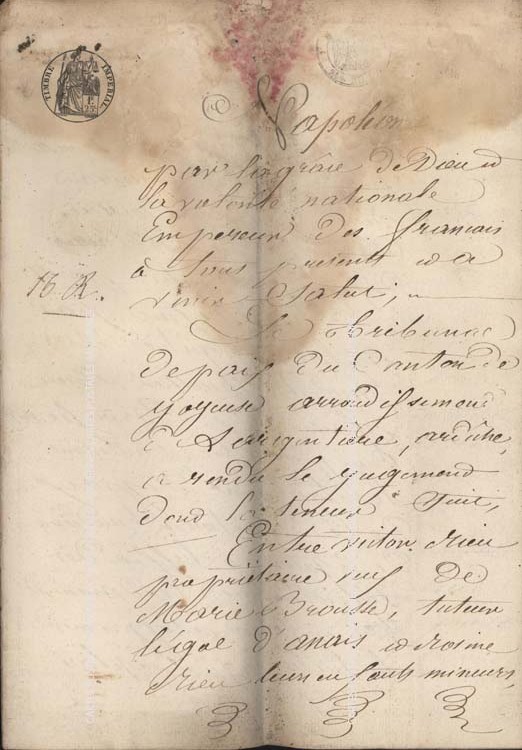 TIMBRE IMPERIAL
Napoléon
par la grâce de Dieu et
la volonté nationale
Empereur des francais
à tous présents et a
venir Salut,
16 R.
Le tribunal
de paix du Canton de
Joyeuse arrondissement
d'Largentière, ardèche,
a rendu le jugement
dont la teneur suit,
Entre victor rieu
propriétaire veuf de
Marie Brousse, tuteur
légal d'anais et rosine
rieu leurs enfants mineurs,